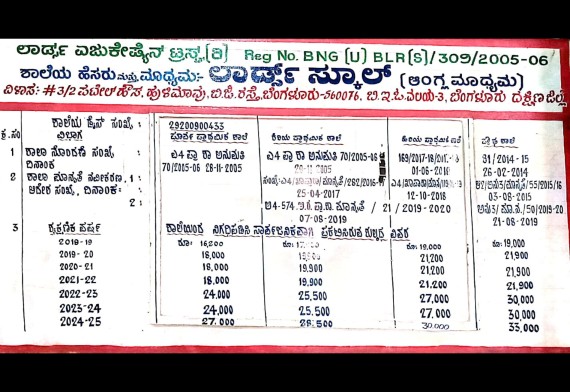 ಲಾರ್ಡ್ಸ್ ಎಜುಕೇಷ್ಯನ್ ಟ್ರಸ್ಟ್ (ರಿ) Reg No. BNG (U) BLR(S)/309/2005-06
ಶಾಲೆಯ ಹೆಸರು ಮತ್ತು ಮಾಧ್ಯಮ:- ಲಾರ್ಡ್ಸ್ ಸ್ಕೂಲ್ (ಆಂಗ್ಲ ಮಾಧ್ಯಮ)
ವಿಳಾಸ: #3/2 ಪಟೇಲ್ ಹೌಸ್, ಹುಳಿಮಾವು, ಬಿ.ಜಿ.ರಸ್ತೆ, ಬೆಂಗಳೂರು-560076. ಬಿ.ಇ.ಓ ವಲಯ-3, ಬೆಂಗಳೂರು ದಕ್ಷಿಣ ಜಿಲ್ಲೆ
ಕ್ರ.ಸಂ ಶಾಲೆಯ ಡೈಸ್ ಸಂಖ್ಯೆ : 29200900433
ವಿಭಾಗ ಪೂರ್ವ ಪ್ರಾಥಮಿಕ ಶಾಲೆ ಕಿರಿಯ ಪ್ರಾಥಮಿಕ ಶಾಲೆ ಹಿರಿಯ ಪ್ರಾಥಮಿಕ ಶಾಲೆ ಪ್ರೌಢ ಶಾಲೆ
1 ಶಾಲಾ ನೋಂದಣಿ ಸಂಖ್ಯೆ : ಎ4 ಪ್ರಾ ಶಾ ಅನುಮತಿ ಎ4 ಪ್ರಾ ಶಾ ಅನುಮತಿ 70/2005-06 31/2014-15
ದಿನಾಂಕ 70/2005-06 28-11-2005 01-06-2018 26-02-2014
2 ಶಾಲಾ ಮಾನ್ಯತೆ ನವೀಕರಣ, 1
ಆದೇಶ ಸಂಖ್ಯೆ, ದಿನಾಂಕ: 25-04-2017 12-10-2018 03-08-2015
2: 21/2019-2020
07-08-2019 21-08-2019
3 ಶೈಕ್ಷಣಿಕ ವರ್ಷ ಶಾಲೆಯಿಂದ ನಿಗದಿಪಡಿಸಿ ಸಾರ್ವಜನಿಕವಾಗಿ ಪ್ರಕಟಿಸಿರುವ ಶುಲ್ಕದ ವಿವರ
2018-19 ರೂ: 16,200 ರೂ: ರೂ: 19,000 ರೂ: 19,000
2019-20 18,000 21,200 21,900
2020-21 18,000 19,900 21,200 21,900
2021-22 18,000 19,900 21,200 21,900
2022-23 24,000 25,500 27,000 30,000
2023-24 24,000 25,500 27,000 30,000
2024-25 27,000 28,500 30,000 33,000